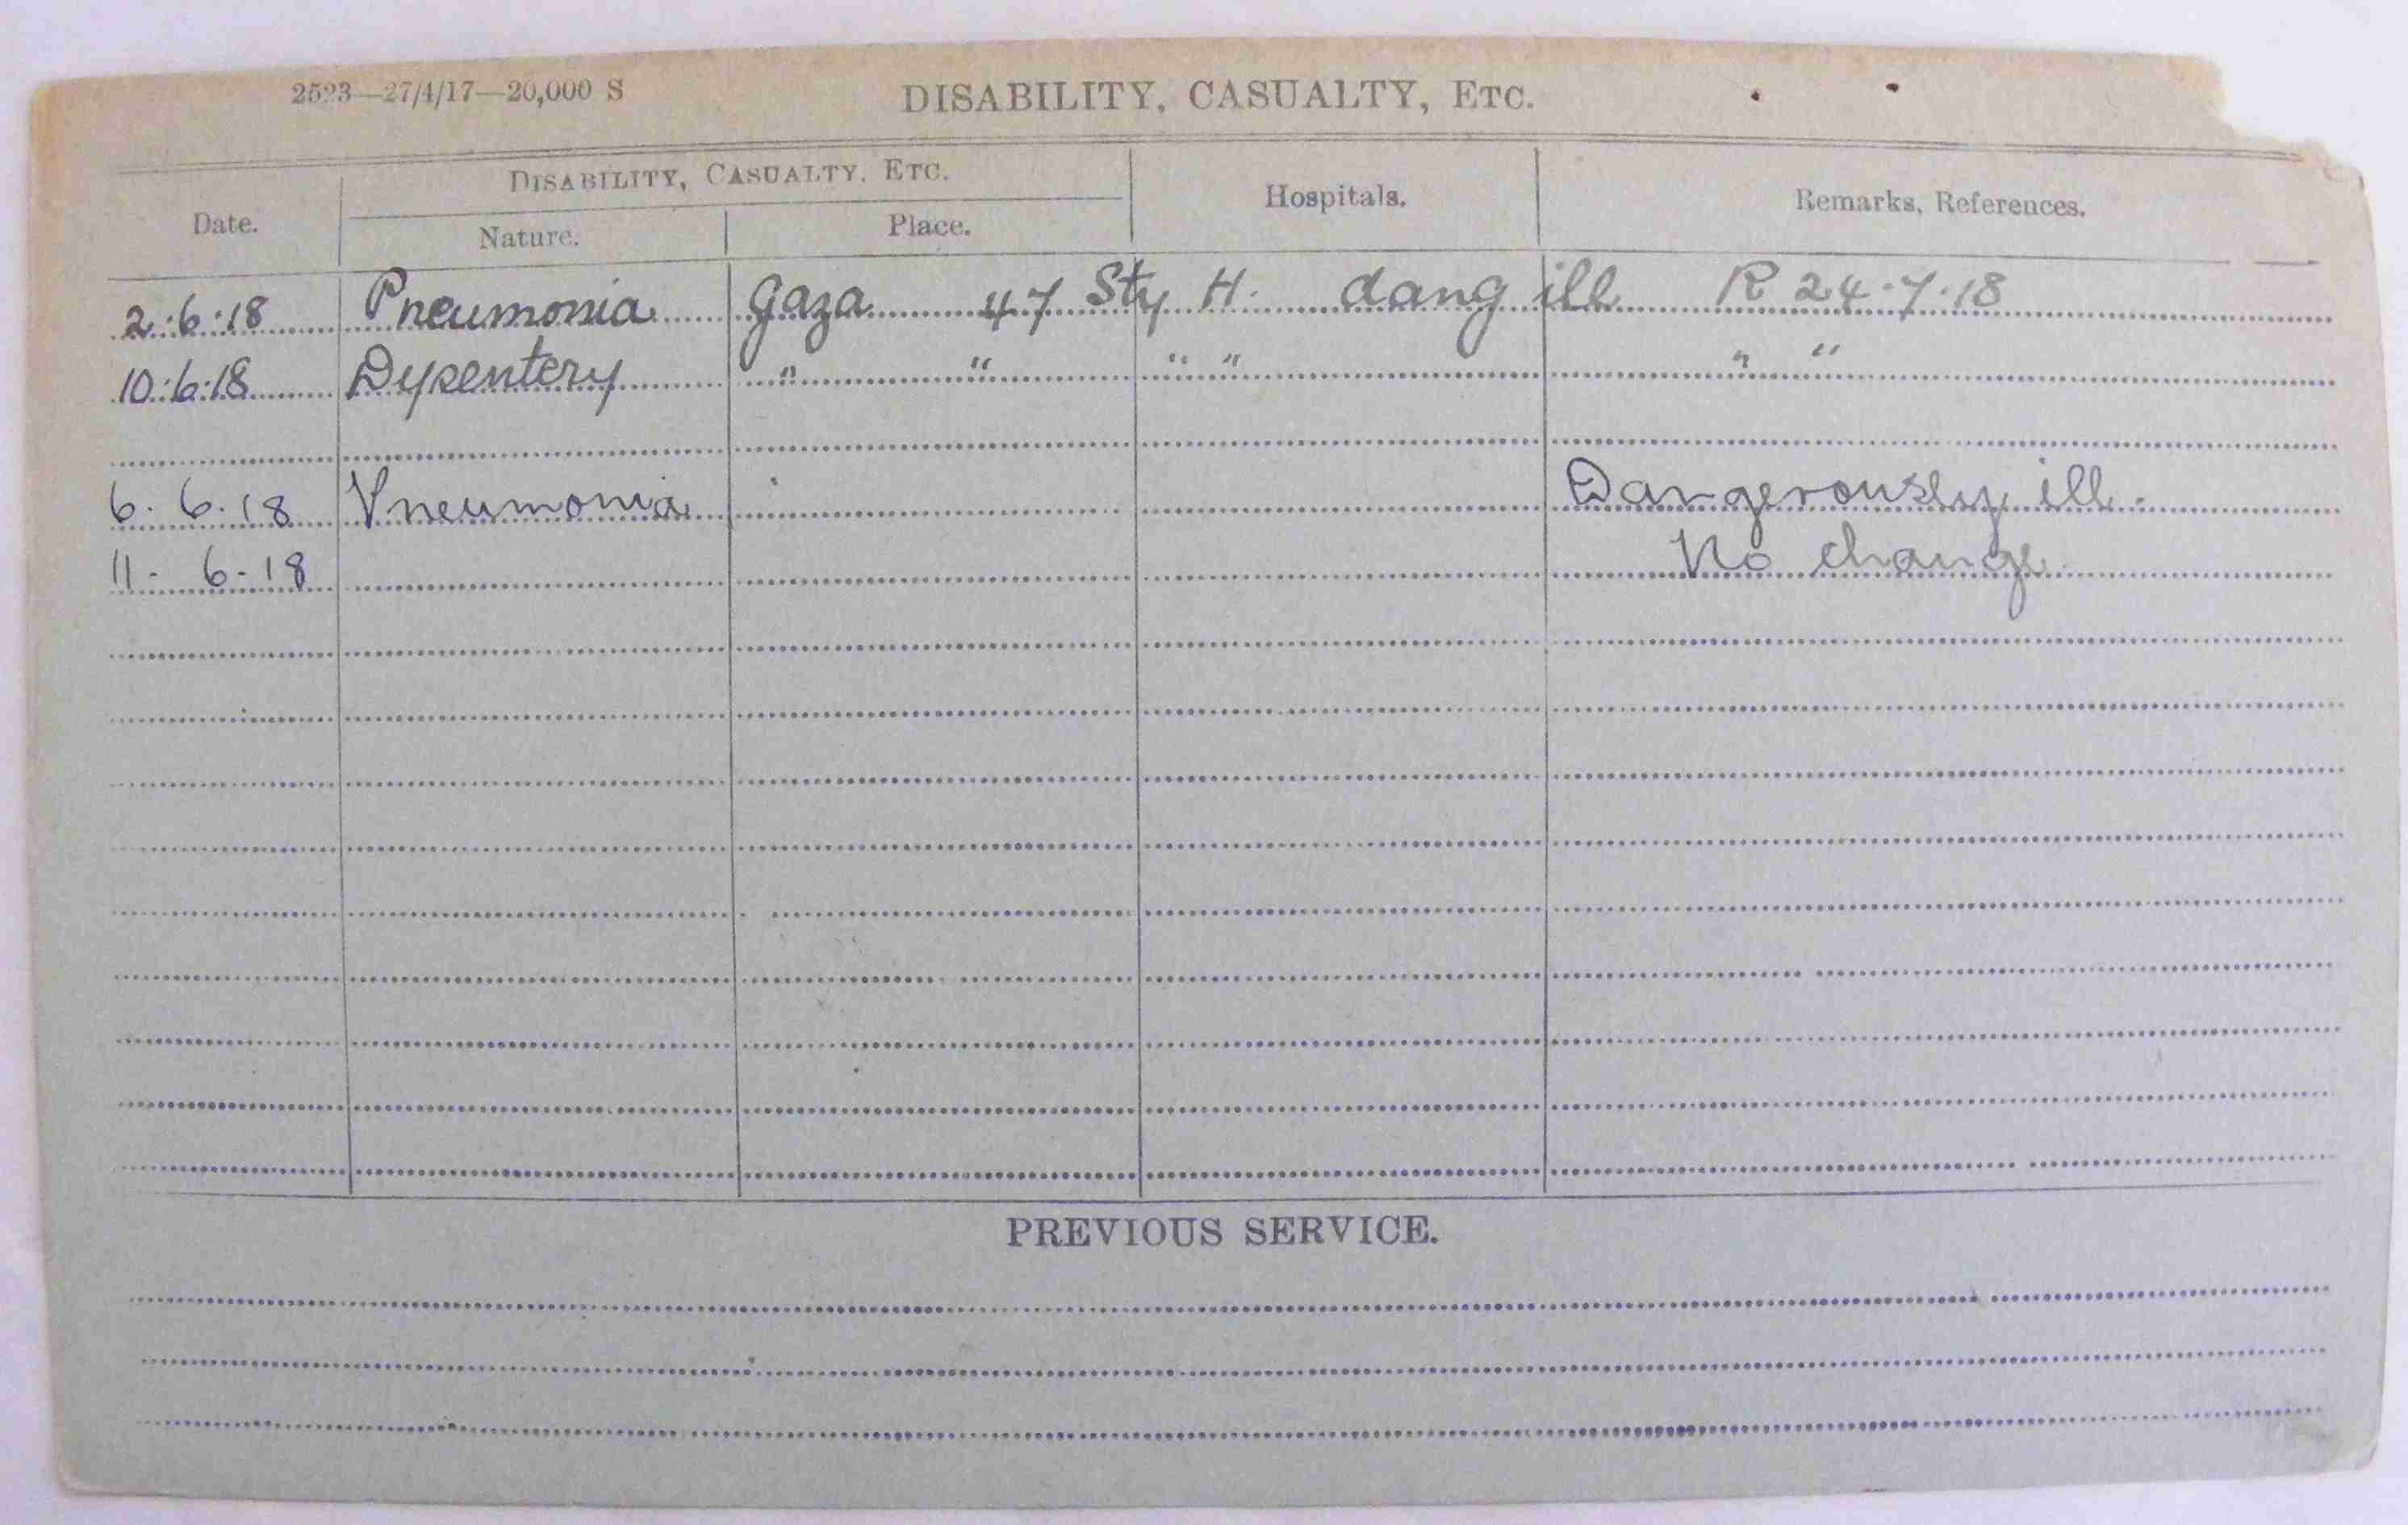 2523—27/4/17—20,000 S DISABILITY, CASUALTY, ETC.
DISABILITY, CASUALTY, ETC.
Date. Nature. Place. Hospitals. Remarks, References.
2.6.18 Pneumonia Gaza 47 Sty H. dang ill R 24.7.18
10.6.18 Dysentery " " " " " "
6.6.18 Pneumonia Dangerously ill.
11-6-18 No change
PREVIOUS SERVICE.